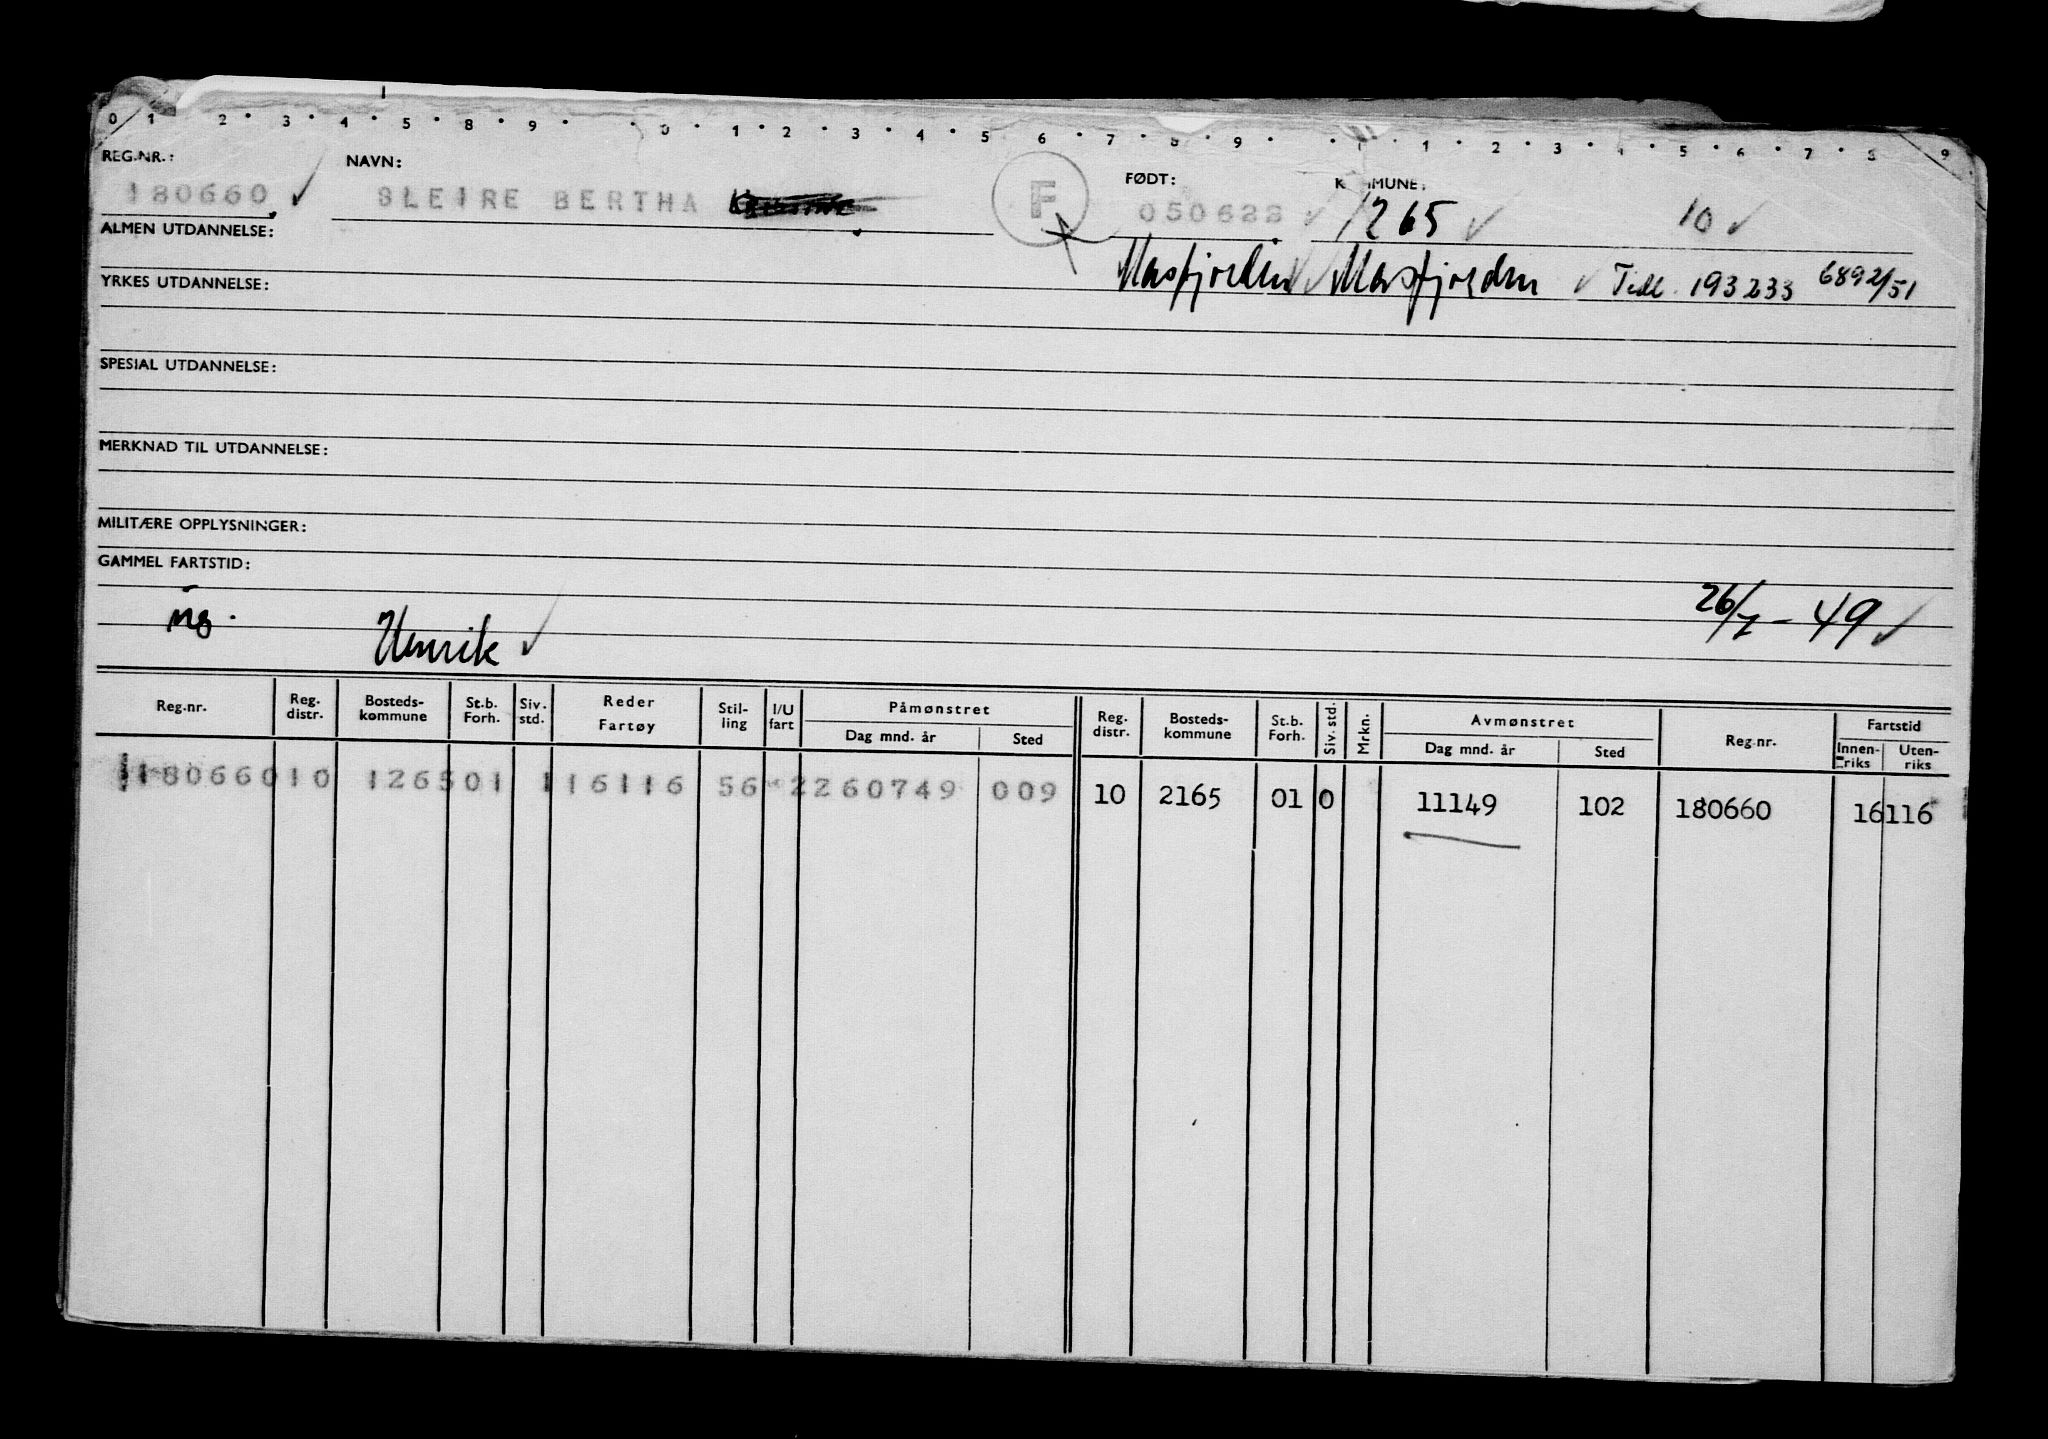 0 1 2 3 4 5 8 9 0 1 2 3 4 5 6 7 8 9 1 2 3 4 5 6 7 8 9
REG.NR.: NAVN: FØDT: KOMMUNE:
180660 SLEIRE BERTHA F 050628 1265 10
ALMEN UTDANNELSE: Masfjorden Masfjorden Tidl. 193233 6892/51
YRKES UTDANNELSE:
SPESIAL UTDANNELSE:
MERKNAD TIL UTDANNELSE:
MILITÆRE OPPLYSNINGER:
GAMMEL FARTSTID:
ng. Henrik 26/7-49
Reg.nr. Reg. distr. Bosteds-kommune St.b. Forh. Siv. std. Reder Fartøy Stil-ling I/U fart Påmønstret Dag mnd. år Sted Reg. distr. Bosteds-kommune St.b. Forh. Siv. std. Mrkn. Avmønstret Dag mnd. år Sted Reg.nr. Fartstid Innen-riks Uten-riks
180660 10 1265 01 1 16116 56 2 260749 009 10 2165 01 0 11149 102 180660 16116